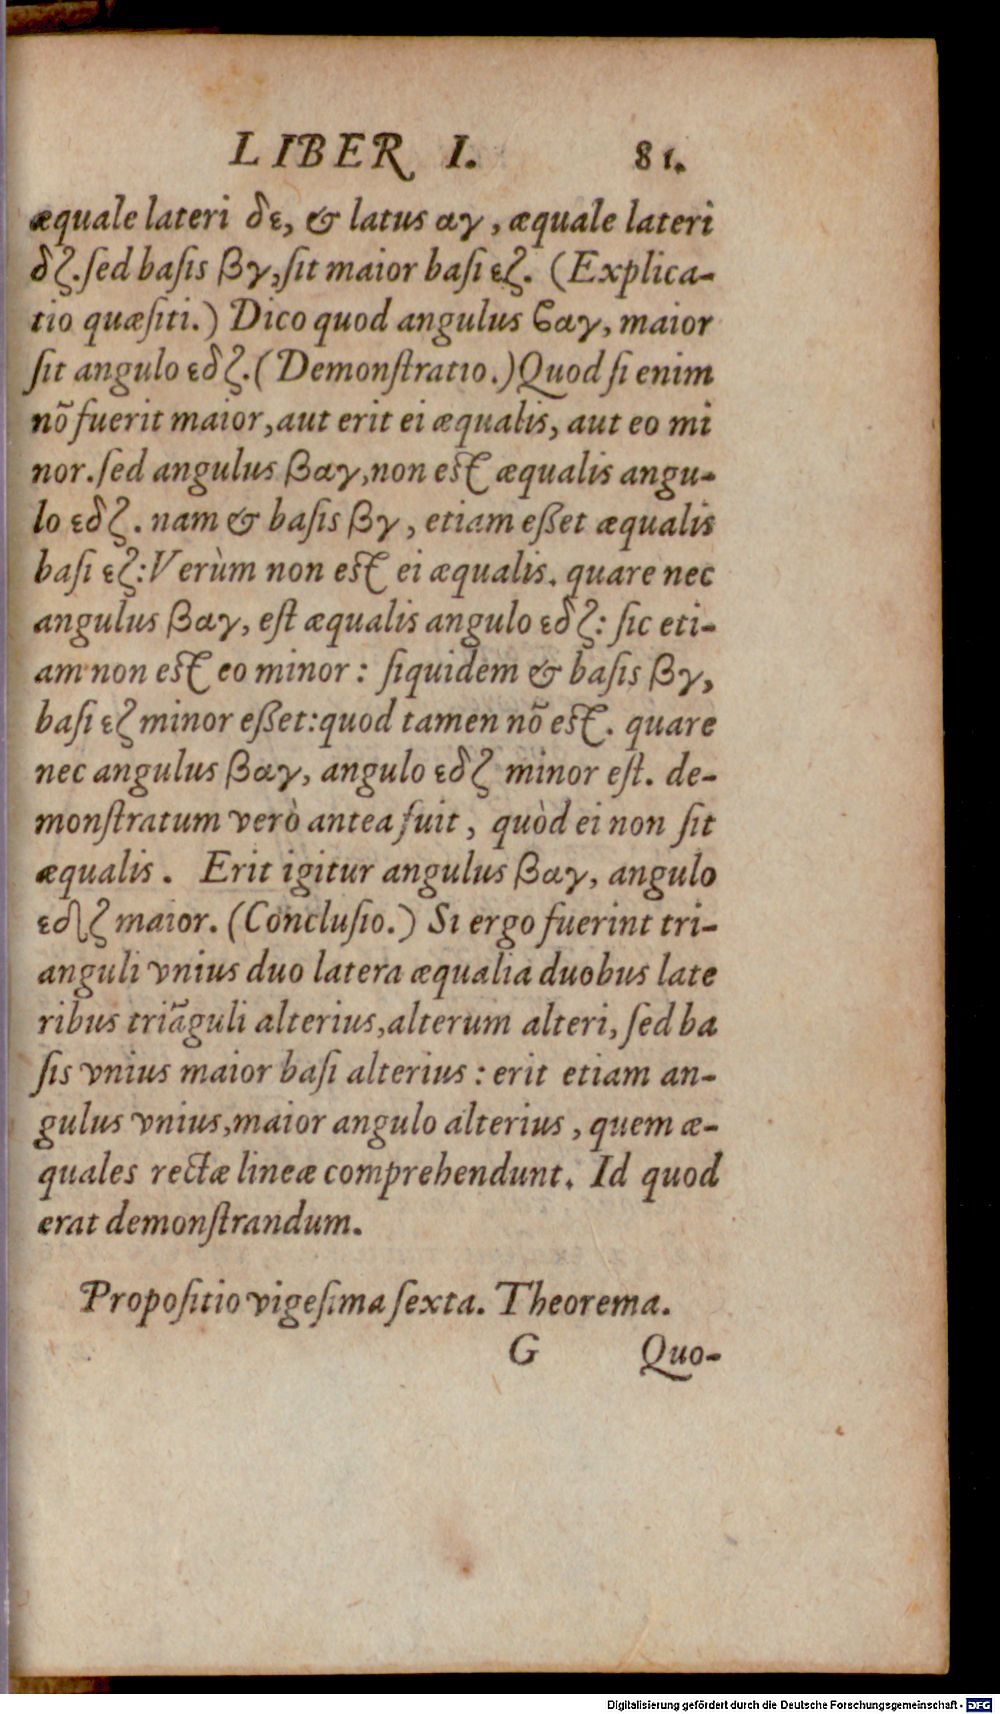 LIBER I. 81.
æquale lateri δε, & latus αγ, æquale lateri
δζ. ſed baſis βγ, ſit maior baſi εζ. (Explica-
tio quæſiti.) Dico quod angulus ϐαγ, maior
ſit angulo εδζ. (Demonſtratio.) Quod ſi enim
nõ fuerit maior, aut erit ei æqualis, aut eo mi
nor. ſed angulus βαγ, non eſt æqualis angu-
lo εδζ. nam & baſis βγ, etiam eſſet æqualis
baſi εζ: Verùm non eſt ei æqualis. quare nec
angulus βαγ, eſt æqualis angulo εδζ: ſic eti-
am non eſt eo minor: ſiquidem & baſis βγ,
baſi εζ minor eſſet: quod tamen nõ eſt. quare
nec angulus βαγ, angulo εδζ minor eſt. de-
monſtratum verò antea fuit, quòd ei non ſit
æqualis. Erit igitur angulus βαγ, angulo
εδζ maior. (Concluſio.) Si ergo fuerint tri-
anguli vnius duo latera æqualia duobus late
ribus triãguli alterius, alterum alteri, ſed ba
ſis vnius maior baſi alterius: erit etiam an-
gulus vnius, maior angulo alterius, quem æ-
quales rectæ lineæ comprehendunt. Id quod
erat demonſtrandum.
Propoſitio vigeſima ſexta. Theorema.
G Quo-
Digitalisierung gefördert durch die Deutsche Forschungsgemeinschaft - DFG